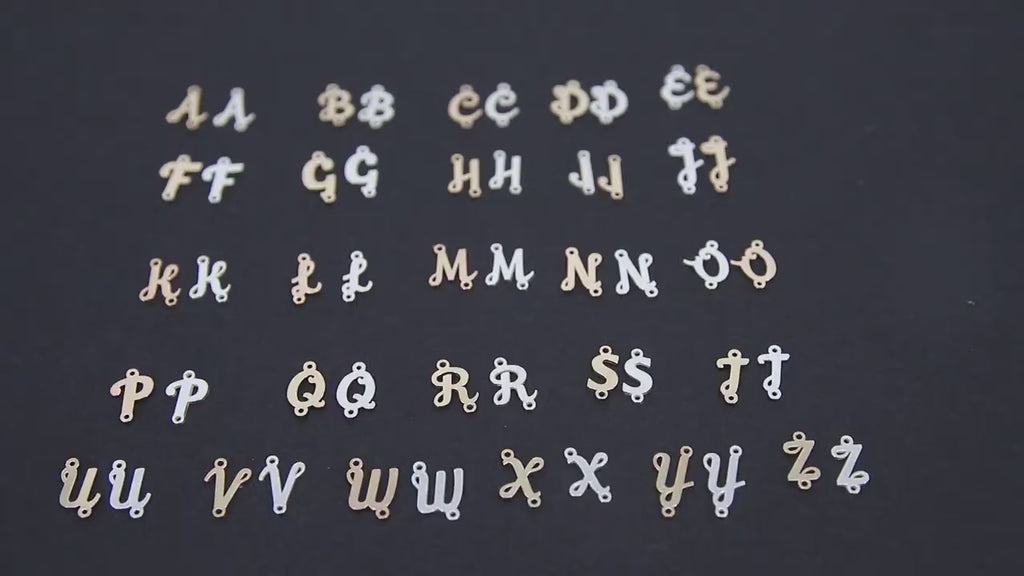 A A B B C C D D E E
F F G G H H I I J J
K K L L M M N N O O
P P Q Q R R S S T T
U U V V W W X X Y Y Z Z